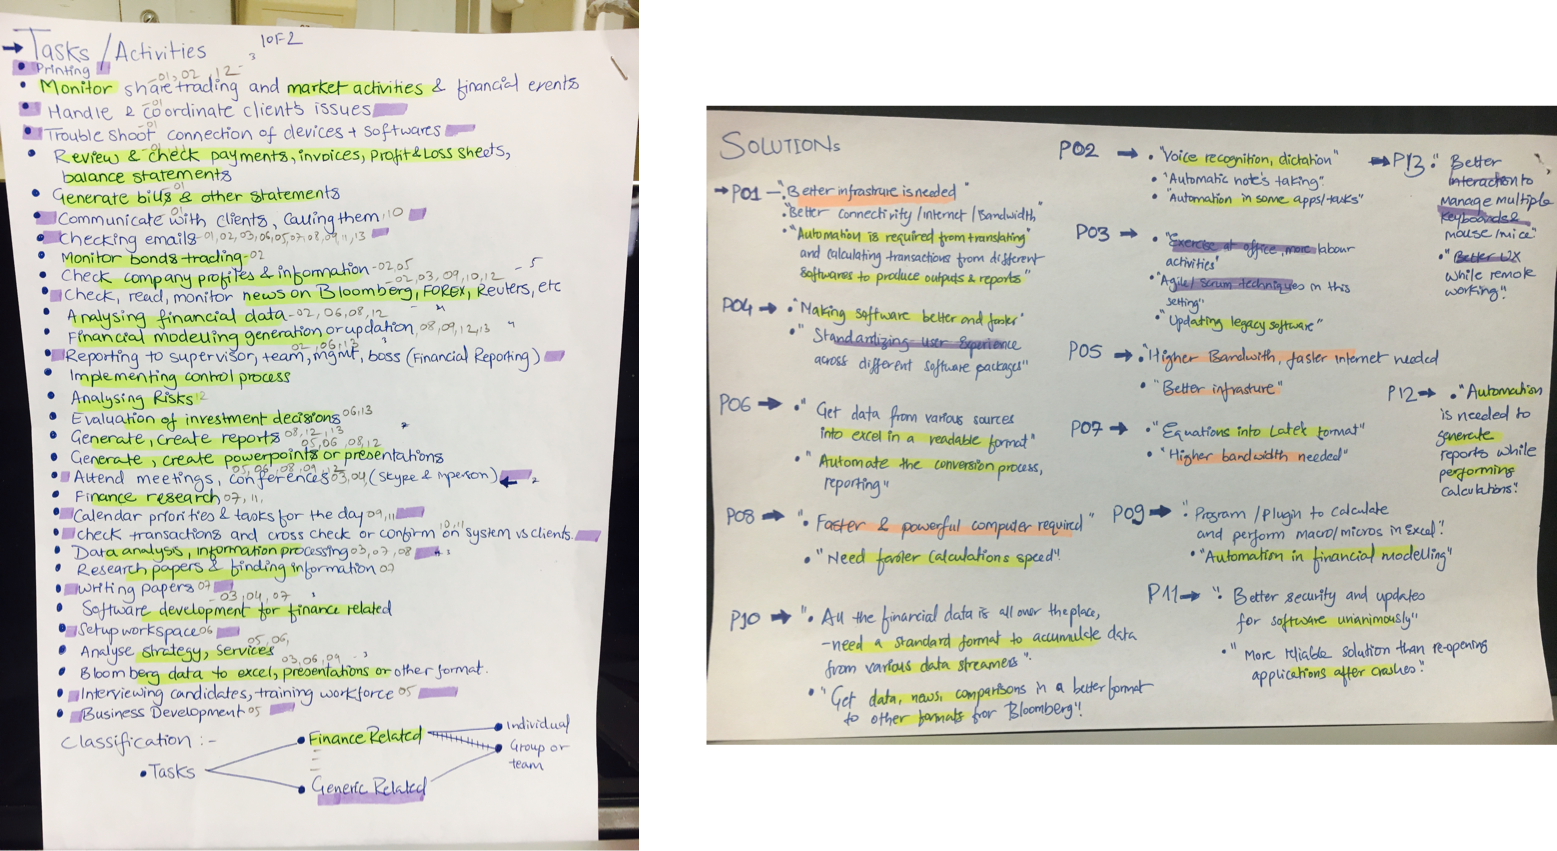 → Tasks / Activities 1 OF 2
• Printing
-01, 02, 12 -
• Monitor share trading and market activities & financial events
-01
• Handle & coordinate clients issues
-01
• Trouble shoot connection of devices + softwares
• Review & check payments, invoices, Profit & Loss sheets,
balance statements
01
• Generate bills & other statements
01
• Communicate with clients, calling them, 10
• Checking emails -01, 02, 03, 06, 05, 07, 08, 09, 11, 13
• Monitor bonds trading -02
• Check company profiles & information -02, 05
-02, 03, 09, 10, 12 - 5
• Check, read, monitor news on Bloomberg, FOREX, Reuters, etc
• Analysing financial data -02, 06, 08, 12
• Financial modelling generation or updation, 08, 09, 12, 13
02, 06, 13
• Reporting to supervisor, team, mgmt, boss (Financial Reporting)
• Implementing control process
• Analysing Risks 12
• Evaluation of investment decisions 06, 13
• Generate, create reports 08, 12, 13
05, 06, 08, 12
• Generate, create powerpoints or presentations
05, 06, 08, 09, 12
• Attend meetings, conferences 03, 04, (Skype & inperson) ←
• Finance research 07, 11,
• Calendar priorities & tasks for the day 09, 11
10, 11
• check transactions and cross check or confirm on system vs clients.
• Data analysis, information processing 03, 07, 08
• Research papers & binding information 07
• Writing papers 07
-03, 04, 07
• Software development for finance related
• Setup workspace 06
05, 06,
• Analyse strategy, services
03, 06, 09
• Bloomberg data to excel, presentations or other format.
• Interviewing candidates, training workforce 05
• Business Development 05
Classification :-
• Tasks
• Finance Related
• Generic Related
• Individual
• Group or
team
SOLUTIONs
→ P01 - "Better infrasture is needed"
• "Better connectivity / internet / Bandwidth"
• "Automation is required from translating"
and calculating transactions from different
softwares to produce outputs & reports"
P04 → • "Making software better and faster"
• "Standardizing User Experience
across different software packages"
P06 → •" Get data from various sources
into excel in a readable format"
• "Automate the conversion process,
reporting"
P08 → "• Faster & powerful computer required"
• "Need faster calculations speed"!
P10 → "• All the financial data is all over the place,
- need a standard format to accumulate data
from various data streamers".
• "Get data, news, comparisons in a better format
to other formats from Bloomberg"!
P02 → • "Voice recognition, dictation"
• "Automatic note's taking".
• "Automation in some apps/tasks"
P03 → • "Exercise at office, more labour
activities"
• "Agile / scrum techniques in this
setting"
• "Updating legacy software"
P05 → • "Higher Bandwith, faster internet needed
• "Better infrasture"
P07 → • "Equations into Latex format"
• "Higher bandwidth needed"
P09 → • "Program / Plugin to calculate
and perform macro/micros in Excel".
• "Automation in financial modelling"
P11 → "• Better security and updates
for software unanimously"
• "More reliable solution than re-opening
applications after crashes."
→ P13 • Better
interaction to
manage multiple
keyboards &
mouse / mice"
• "Better UX
while remote
working".
P12 → • "Automation
is needed to
generate
reports while
performing
calculations".